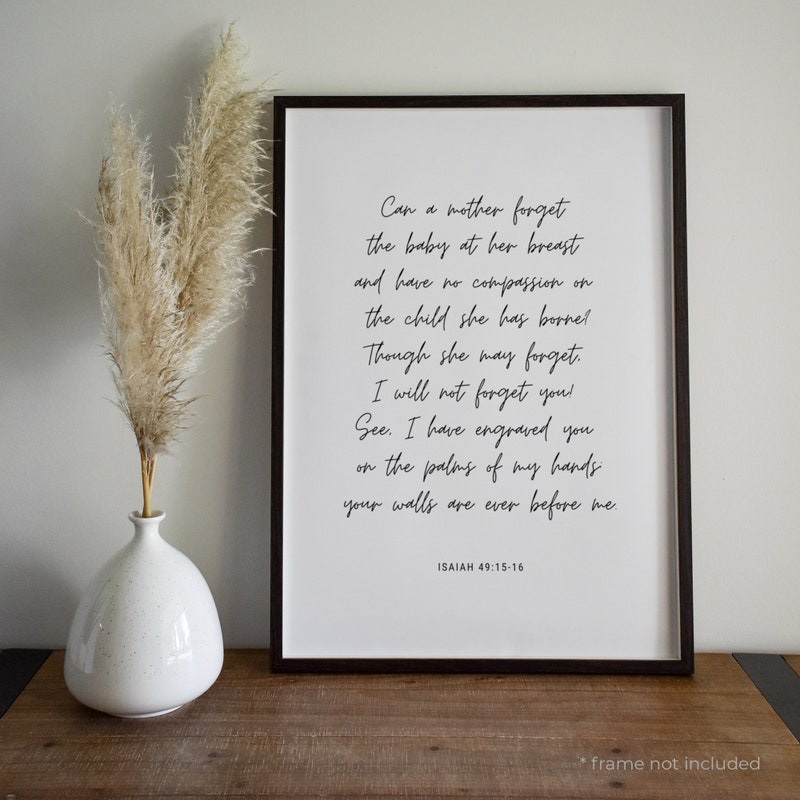 Can a mother forget
the baby at her breast
and have no compassion on
the child she has borne?
Though she may forget,
I will not forget you!
See, I have engraved you
on the palms of my hands;
your walls are ever before me.
ISAIAH 49:15-16
* frame not included